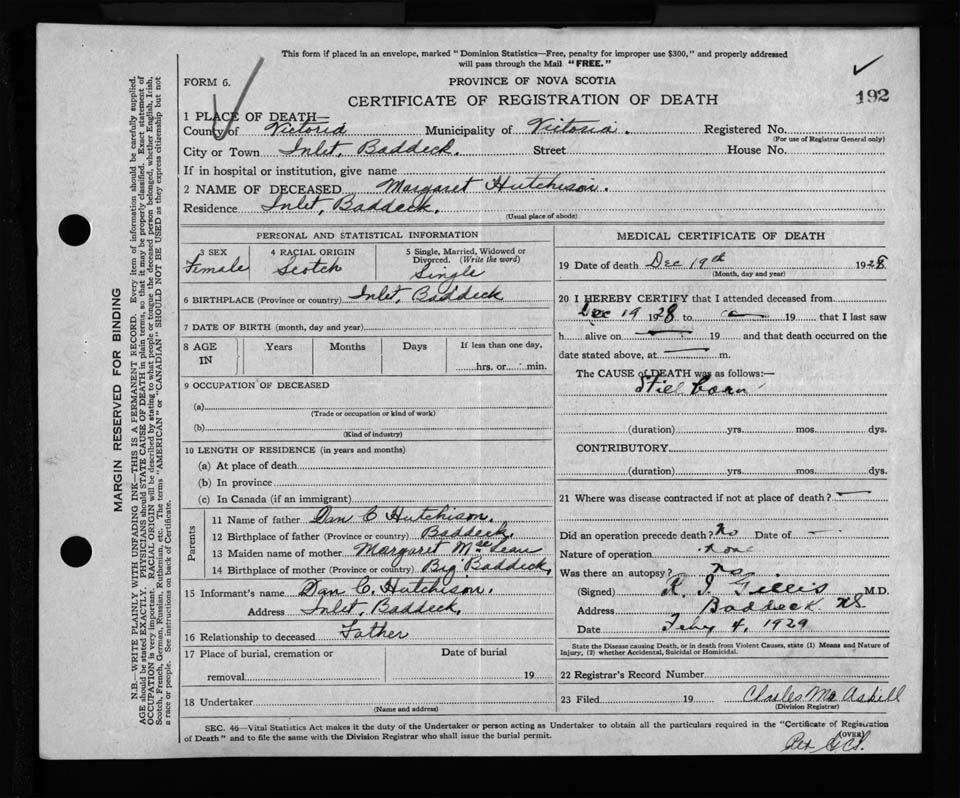 This form if placed in an envelope, marked "Dominion Statistics—Free, penalty for improper use $300," and properly addressed
will pass through the Mail "FREE."
FORM 6.
PROVINCE OF NOVA SCOTIA
CERTIFICATE OF REGISTRATION OF DEATH
192
1 PLACE OF DEATH—
County of Victoria Municipality of Victoria. Registered No.
(For use of Registrar General only)
City or Town Inlet, Baddeck. Street House No.
If in hospital or institution, give name
2 NAME OF DECEASED Margaret Hutchison.
Residence Inlet, Baddeck.
(Usual place of abode)
PERSONAL AND STATISTICAL INFORMATION
3 SEX 4 RACIAL ORIGIN 5 Single, Married, Widowed or
Divorced. (Write the word)
Female Scotch Single
6 BIRTHPLACE (Province or country) Inlet, Baddeck
7 DATE OF BIRTH (month, day and year)
8 AGE IN Years Months Days If less than one day,
hrs. or min.
9 OCCUPATION OF DECEASED
(a)
(Trade or occupation or kind of work)
(b)
(Kind of industry)
10 LENGTH OF RESIDENCE (in years and months)
(a) At place of death
(b) In province
(c) In Canada (if an immigrant)
Parents
11 Name of father Dan C Hutchison.
12 Birthplace of father (Province or country) Baddeck.
13 Maiden name of mother Margaret McLean
14 Birthplace of mother (Province or country) Big Baddeck,
15 Informant's name Dan C. Hutchison.
Address Inlet, Baddeck,
16 Relationship to deceased Father
17 Place of burial, cremation or Date of burial
removal 19
18 Undertaker
(Name and address)
MEDICAL CERTIFICATE OF DEATH
19 Date of death Dec 19th 1928
(Month, day and year)
20 I HEREBY CERTIFY that I attended deceased from
Dec 19 1928 to 19 that I last saw
h alive on 19 and that death occurred on the
date stated above, at m.
The CAUSE of DEATH was as follows:
Still born
(duration) yrs. mos. dys.
CONTRIBUTORY
(duration) yrs. mos. dys.
21 Where was disease contracted if not at place of death?
Did an operation precede death? No Date of
Nature of operation none
Was there an autopsy? no
(Signed) R. J. Gillis M.D.
Address Baddeck NS
Date Feby 4, 1929
State the Disease causing Death, or in death from Violent Causes, state (1) Means and Nature of
Injury, (2) whether Accidental, Suicidal or Homicidal.
22 Registrar's Record Number
23 Filed 19 Charles McAskill
(Division Registrar)
SEC. 46—Vital Statistics Act makes it the duty of the Undertaker or person acting as Undertaker to obtain all the particulars required in the "Certificate of Registration
of Death" and to file the same with the Division Registrar who shall issue the burial permit.
(OVER)
Per
MARGIN RESERVED FOR BINDING
N.B.—WRITE PLAINLY WITH UNFADING INK—THIS IS A PERMANENT RECORD. Every item of information should be carefully supplied.
AGE should be stated EXACTLY. PHYSICIANS should STATE CAUSE OF DEATH in plain terms, so that it may be properly classified. Exact statement of
OCCUPATION is very important. RACIAL ORIGIN will be described by stating to what people or tongue the deceased person belonged, whether English, Irish,
Scotch, French, German, Russian, Ruthenian, etc. The terms "AMERICAN" or "CANADIAN" SHOULD NOT BE USED as they express citizenship but not
a race or people. See instructions on back of Certificate.